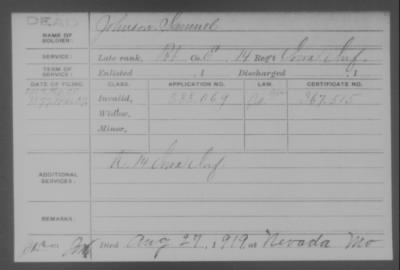 DEAD
NAME OF SOLDIER: Johnson Samuel
SERVICE: Late rank, Pvt Co. 14 Reg't Iowa Inf.
TERM OF SERVICE: Enlisted , 1 Discharged , 1
DATE OF FILING. CLASS. APPLICATION NO. LAW. CERTIFICATE NO.
Invalid, 367.515
Widow,
Minor,
ADDITIONAL SERVICES: K. 14 Iowa Inf
REMARKS:
Died Aug 27, 1919, at Nevada Mo